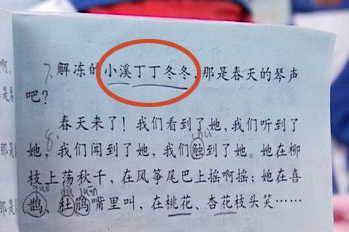 7.解冻的小溪丁丁冬冬,那是春天的琴声
吧?
春天来了!我们看到了她,我们听到了
8.她,我们闻到了她,我们触到了她。她在柳
枝上荡秋千,在风筝尾巴上摇啊摇;她在喜
鹊、杜鹃嘴里叫,在桃花、杏花枝头笑……